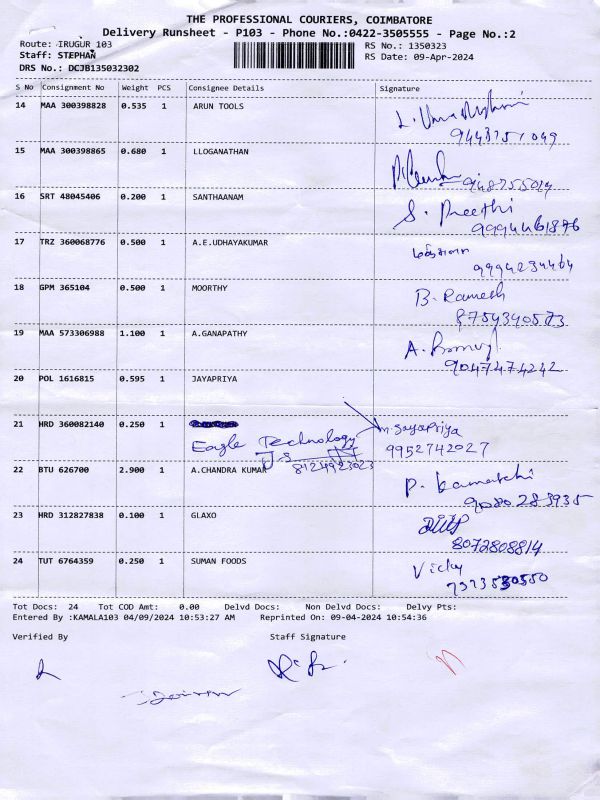 THE PROFESSIONAL COURIERS, COIMBATORE
Delivery Runsheet - P103 - Phone No.:0422-3505555 - Page No.:2
Route: IRUGUR 103
RS No.: 1350323
Staff: STEPHAN
RS Date: 09-Apr-2024
DRS No.: DCJB135032302
S No Consignment No Weight PCS Consignee Details Signature
14 MAA 300398828 0.535 1 ARUN TOOLS
15 MAA 300398865 0.680 1 LLOGANATHAN
16 SRT 48045406 0.200 1 SANTHAANAM S. Preethi
9994461876
17 TRZ 360068776 0.500 1 A.E.UDHAYAKUMAR
9994234464
18 GPM 365104 0.500 1 MOORTHY B. Ramesh
8754340573
19 MAA 573306988 1.100 1 A.GANAPATHY A.
9047474242
20 POL 1616815 0.595 1 JAYAPRIYA
21 HRD 360082140 0.250 1 M.Jayapriya
Eagle Technology 9952742027
8124923023
22 BTU 626700 2.900 1 A.CHANDRA KUMAR P. kamatchi
9080283935
23 HRD 312827838 0.100 1 GLAXO
8072808814
24 TUT 6764359 0.250 1 SUMAN FOODS Vicky
Tot Docs: 24 Tot COD Amt: 0.00 Delvd Docs: Non Delvd Docs: Delvy Pts:
Entered By :KAMALA103 04/09/2024 10:53:27 AM Reprinted On: 09-04-2024 10:54:36
Verified By Staff Signature